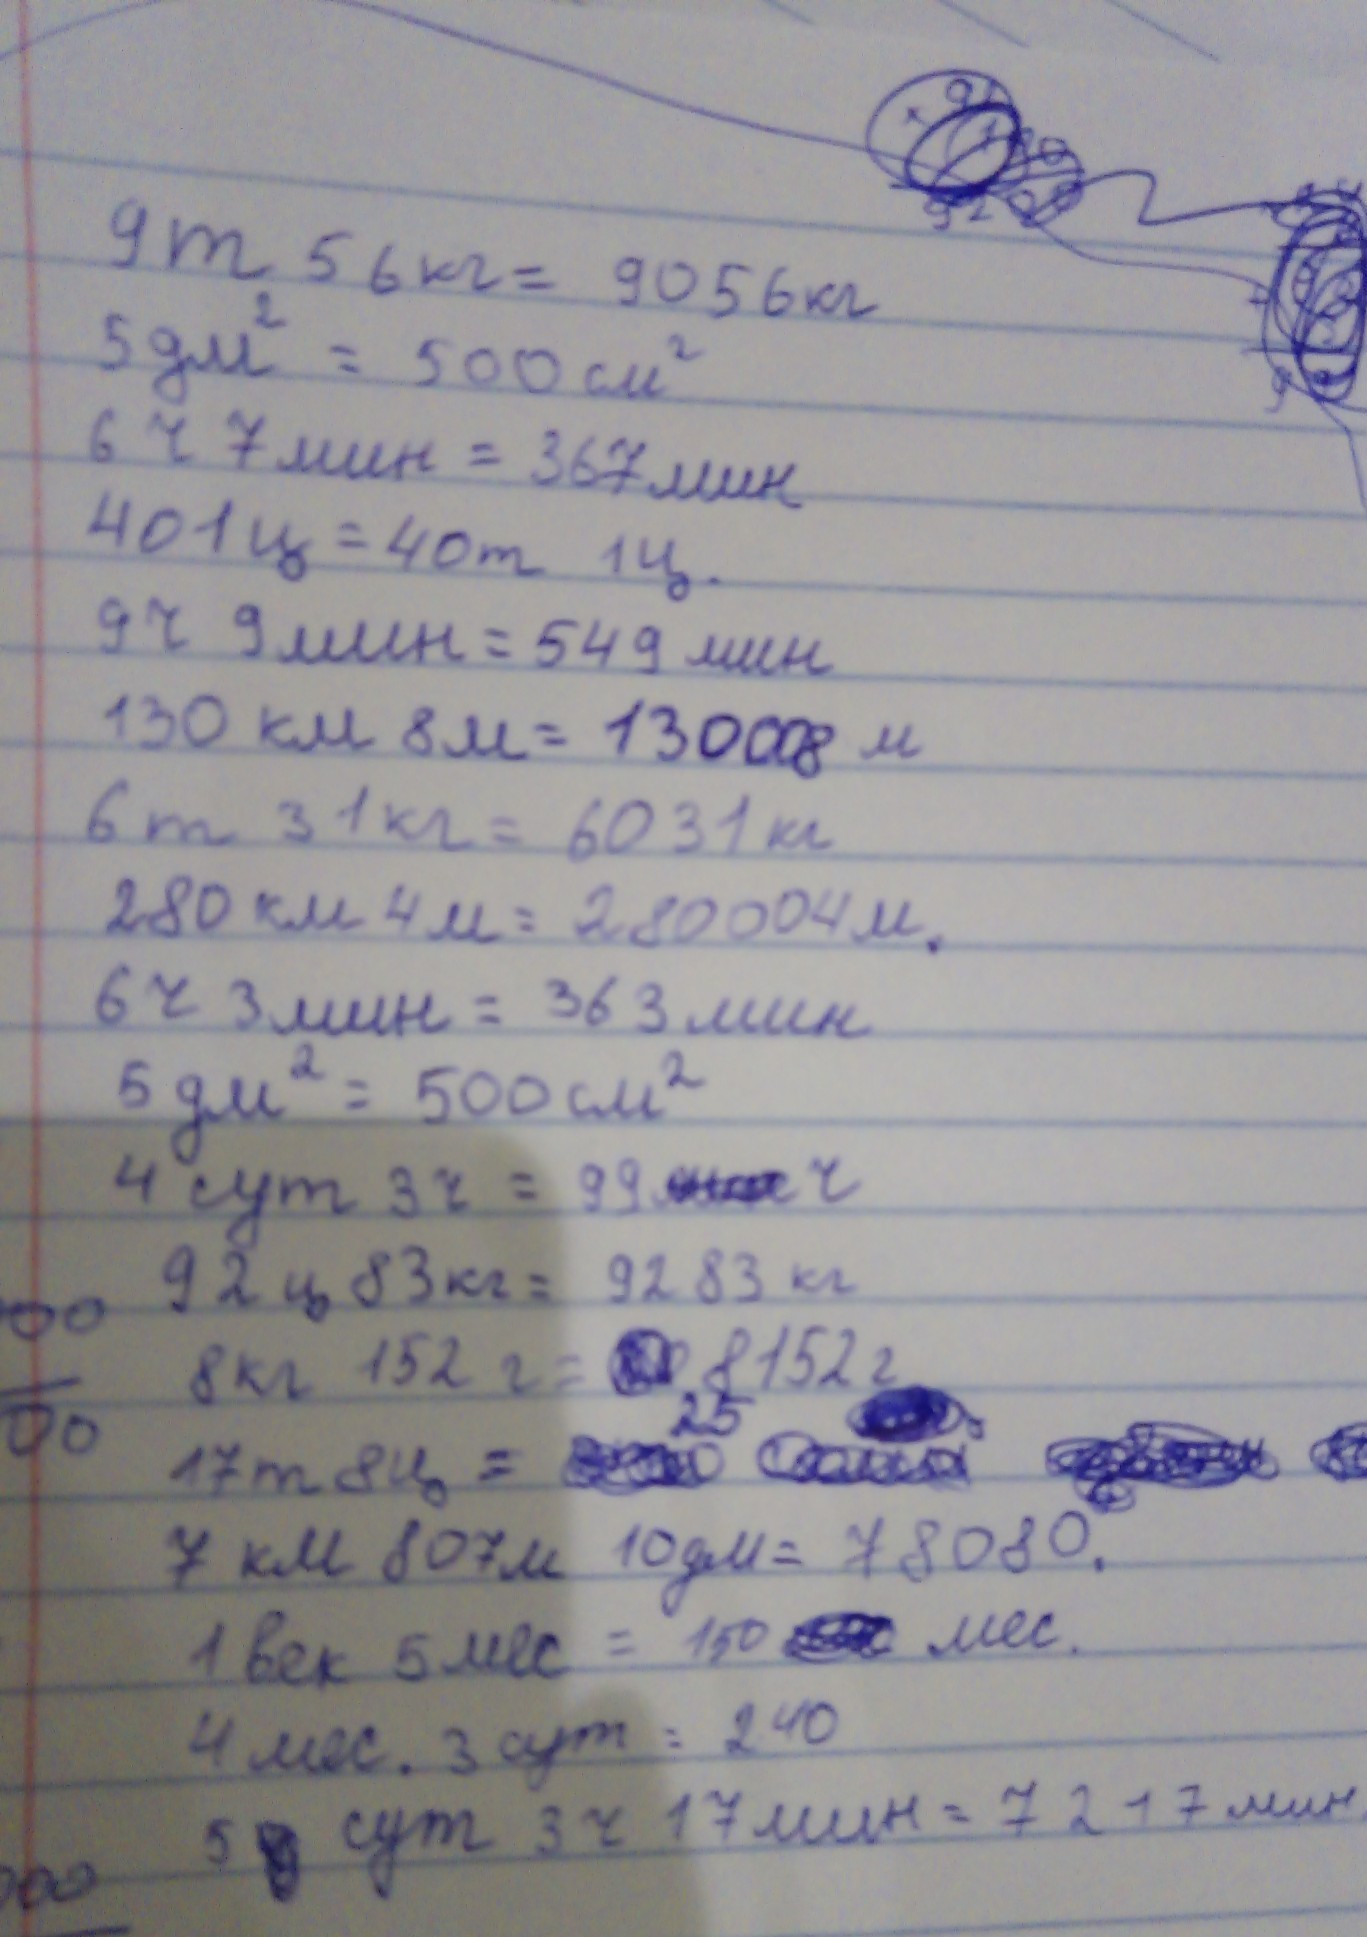 9т 56кг = 9056кг
5дм² = 500см²
6ч 7мин = 367мин
401ц = 40т 1ц.
9ч 9мин = 549мин
130 км 8м = 130008 м
6т 31кг = 6031кг
280 км 4м = 280004м.
6ч 3мин = 363мин
5дм² = 500см²
4 сут 3ч = 99 ч
92ц 83кг = 9283 кг
00
8кг 152 г = 8152г
25
00
17т 8ц =
7 км 807м 10дм = 78080.
1 век 5мес = 150 мес.
4 мес. 3 сут = 240
5 сут 3ч 17мин = 7217мин
000